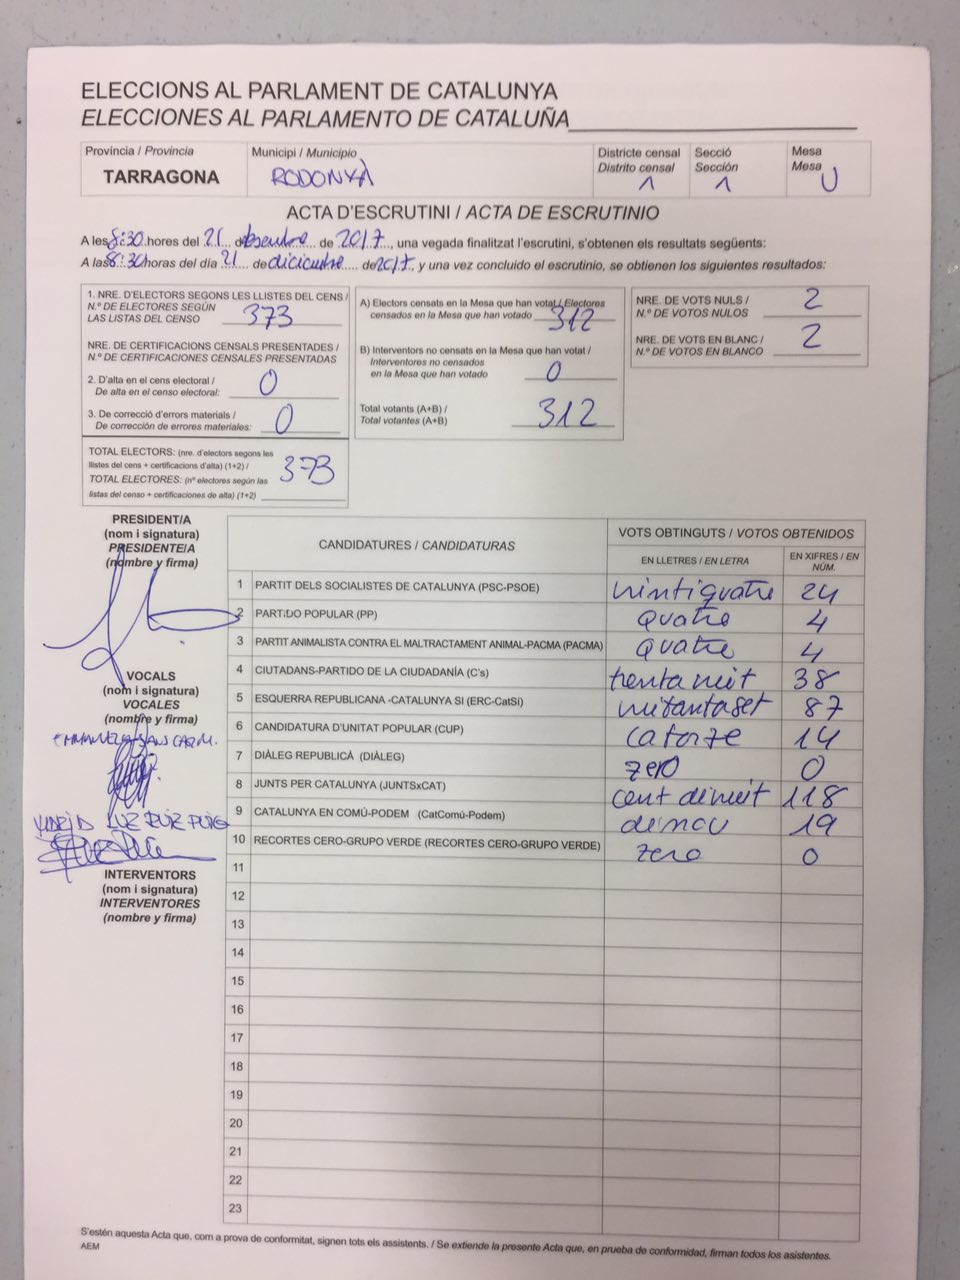 ELECCIONS AL PARLAMENT DE CATALUNYA
ELECCIONES AL PARLAMENTO DE CATALUÑA
Província / Provincia
TARRAGONA
Municipi / Municipio
RODONYÀ
Districte censal
Distrito censal
1
Secció
Sección
1
Mesa
Mesa
U
ACTA D'ESCRUTINI / ACTA DE ESCRUTINIO
A les 8:30 hores del 21 desembre de 2017, una vegada finalitzat l'escrutini, s'obtenen els resultats següents:
A las 8:30 horas del día 21 de diciembre de 2017, y una vez concluido el escrutinio, se obtienen los siguientes resultados:
1. NRE. D'ELECTORS SEGONS LES LLISTES DEL CENS /
N.º DE ELECTORES SEGÚN
LAS LISTAS DEL CENSO 373
NRE. DE CERTIFICACIONS CENSALS PRESENTADES /
N.º DE CERTIFICACIONES CENSALES PRESENTADAS
2. D'alta en el cens electoral /
De alta en el censo electoral: 0
3. De correcció d'errors materials /
De corrección de errores materiales: 0
TOTAL ELECTORS: (nre. d'electors segons les
llistes del cens + certificacions d'alta) (1+2) /
TOTAL ELECTORES: (nº electores según las
listas del censo + certificaciones de alta) (1+2)
373
A) Electors censats en la Mesa que han votat / Electores
censados en la Mesa que han votado 312
B) Interventors no censats en la Mesa que han votat /
Interventores no censados
en la Mesa que han votado 0
Total votants (A+B) /
Total votantes (A+B) 312
NRE. DE VOTS NULS /
N.º DE VOTOS NULOS 2
NRE. DE VOTS EN BLANC /
N.º DE VOTOS EN BLANCO 2
PRESIDENT/A
(nom i signatura)
PRESIDENTE/A
(nombre y firma)
VOCALS
(nom i signatura)
VOCALES
(nombre y firma)
INTERVENTORS
(nom i signatura)
INTERVENTORES
(nombre y firma)
CANDIDATURES / CANDIDATURAS
VOTS OBTINGUTS / VOTOS OBTENIDOS
EN LLETRES / EN LETRA
EN XIFRES / EN NÚM.
1 PARTIT DELS SOCIALISTES DE CATALUNYA (PSC-PSOE) vintiquatre 24
2 PARTIDO POPULAR (PP) quatre 4
3 PARTIT ANIMALISTA CONTRA EL MALTRACTAMENT ANIMAL-PACMA (PACMA) quatre 4
4 CIUTADANS-PARTIDO DE LA CIUDADANÍA (C's) trenta nuit 38
5 ESQUERRA REPUBLICANA -CATALUNYA SI (ERC-CatSí) nuitantaset 87
6 CANDIDATURA D'UNITAT POPULAR (CUP) catorze 14
7 DIÀLEG REPUBLICÀ (DIÀLEG) zero 0
8 JUNTS PER CATALUNYA (JUNTSxCAT) cent dinuit 118
9 CATALUNYA EN COMÚ-PODEM (CatComú-Podem) dinou 19
10 RECORTES CERO-GRUPO VERDE (RECORTES CERO-GRUPO VERDE) zero 0
11
12
13
14
15
16
17
18
19
20
21
22
23
S'estén aquesta Acta que, com a prova de conformitat, signen tots els assistents. / Se extiende la presente Acta que, en prueba de conformidad, firman todos los asistentes.
AEM